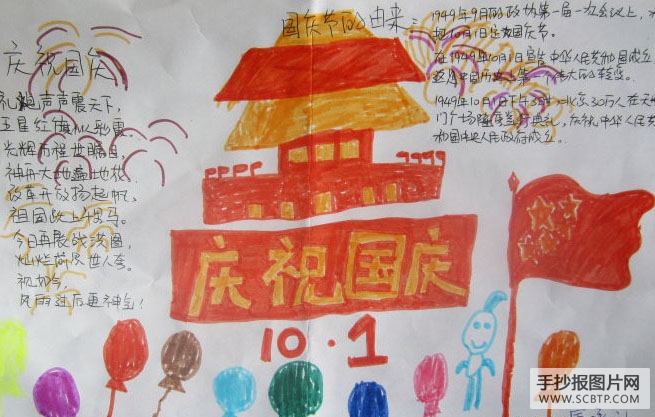 国庆节的由来:
1949年9月的政协第一届一次会议上,
把10月1日定为国庆节。
在1949年10月1日宣告中华人民共和国成立
这是中国历史上第一个伟大的转变。
1949年10月1日下午3时,北京30万人在天
门广场隆重举行典礼,庆祝中华人民
和国中央人民政府成立。
庆祝国庆
礼炮声声震天下,
五星红旗
光辉历程世瞩目,
神州大地遍地花
改革开放扬起帆,
祖国
今日再展
灿烂前景世人夸。
风雨过后更神气!
庆祝国庆
10·1
手抄报图片网
WWW.SCBTP.COM